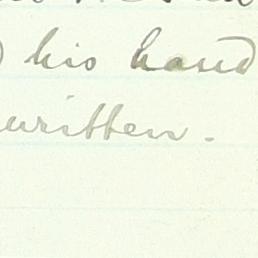 his hand
written.